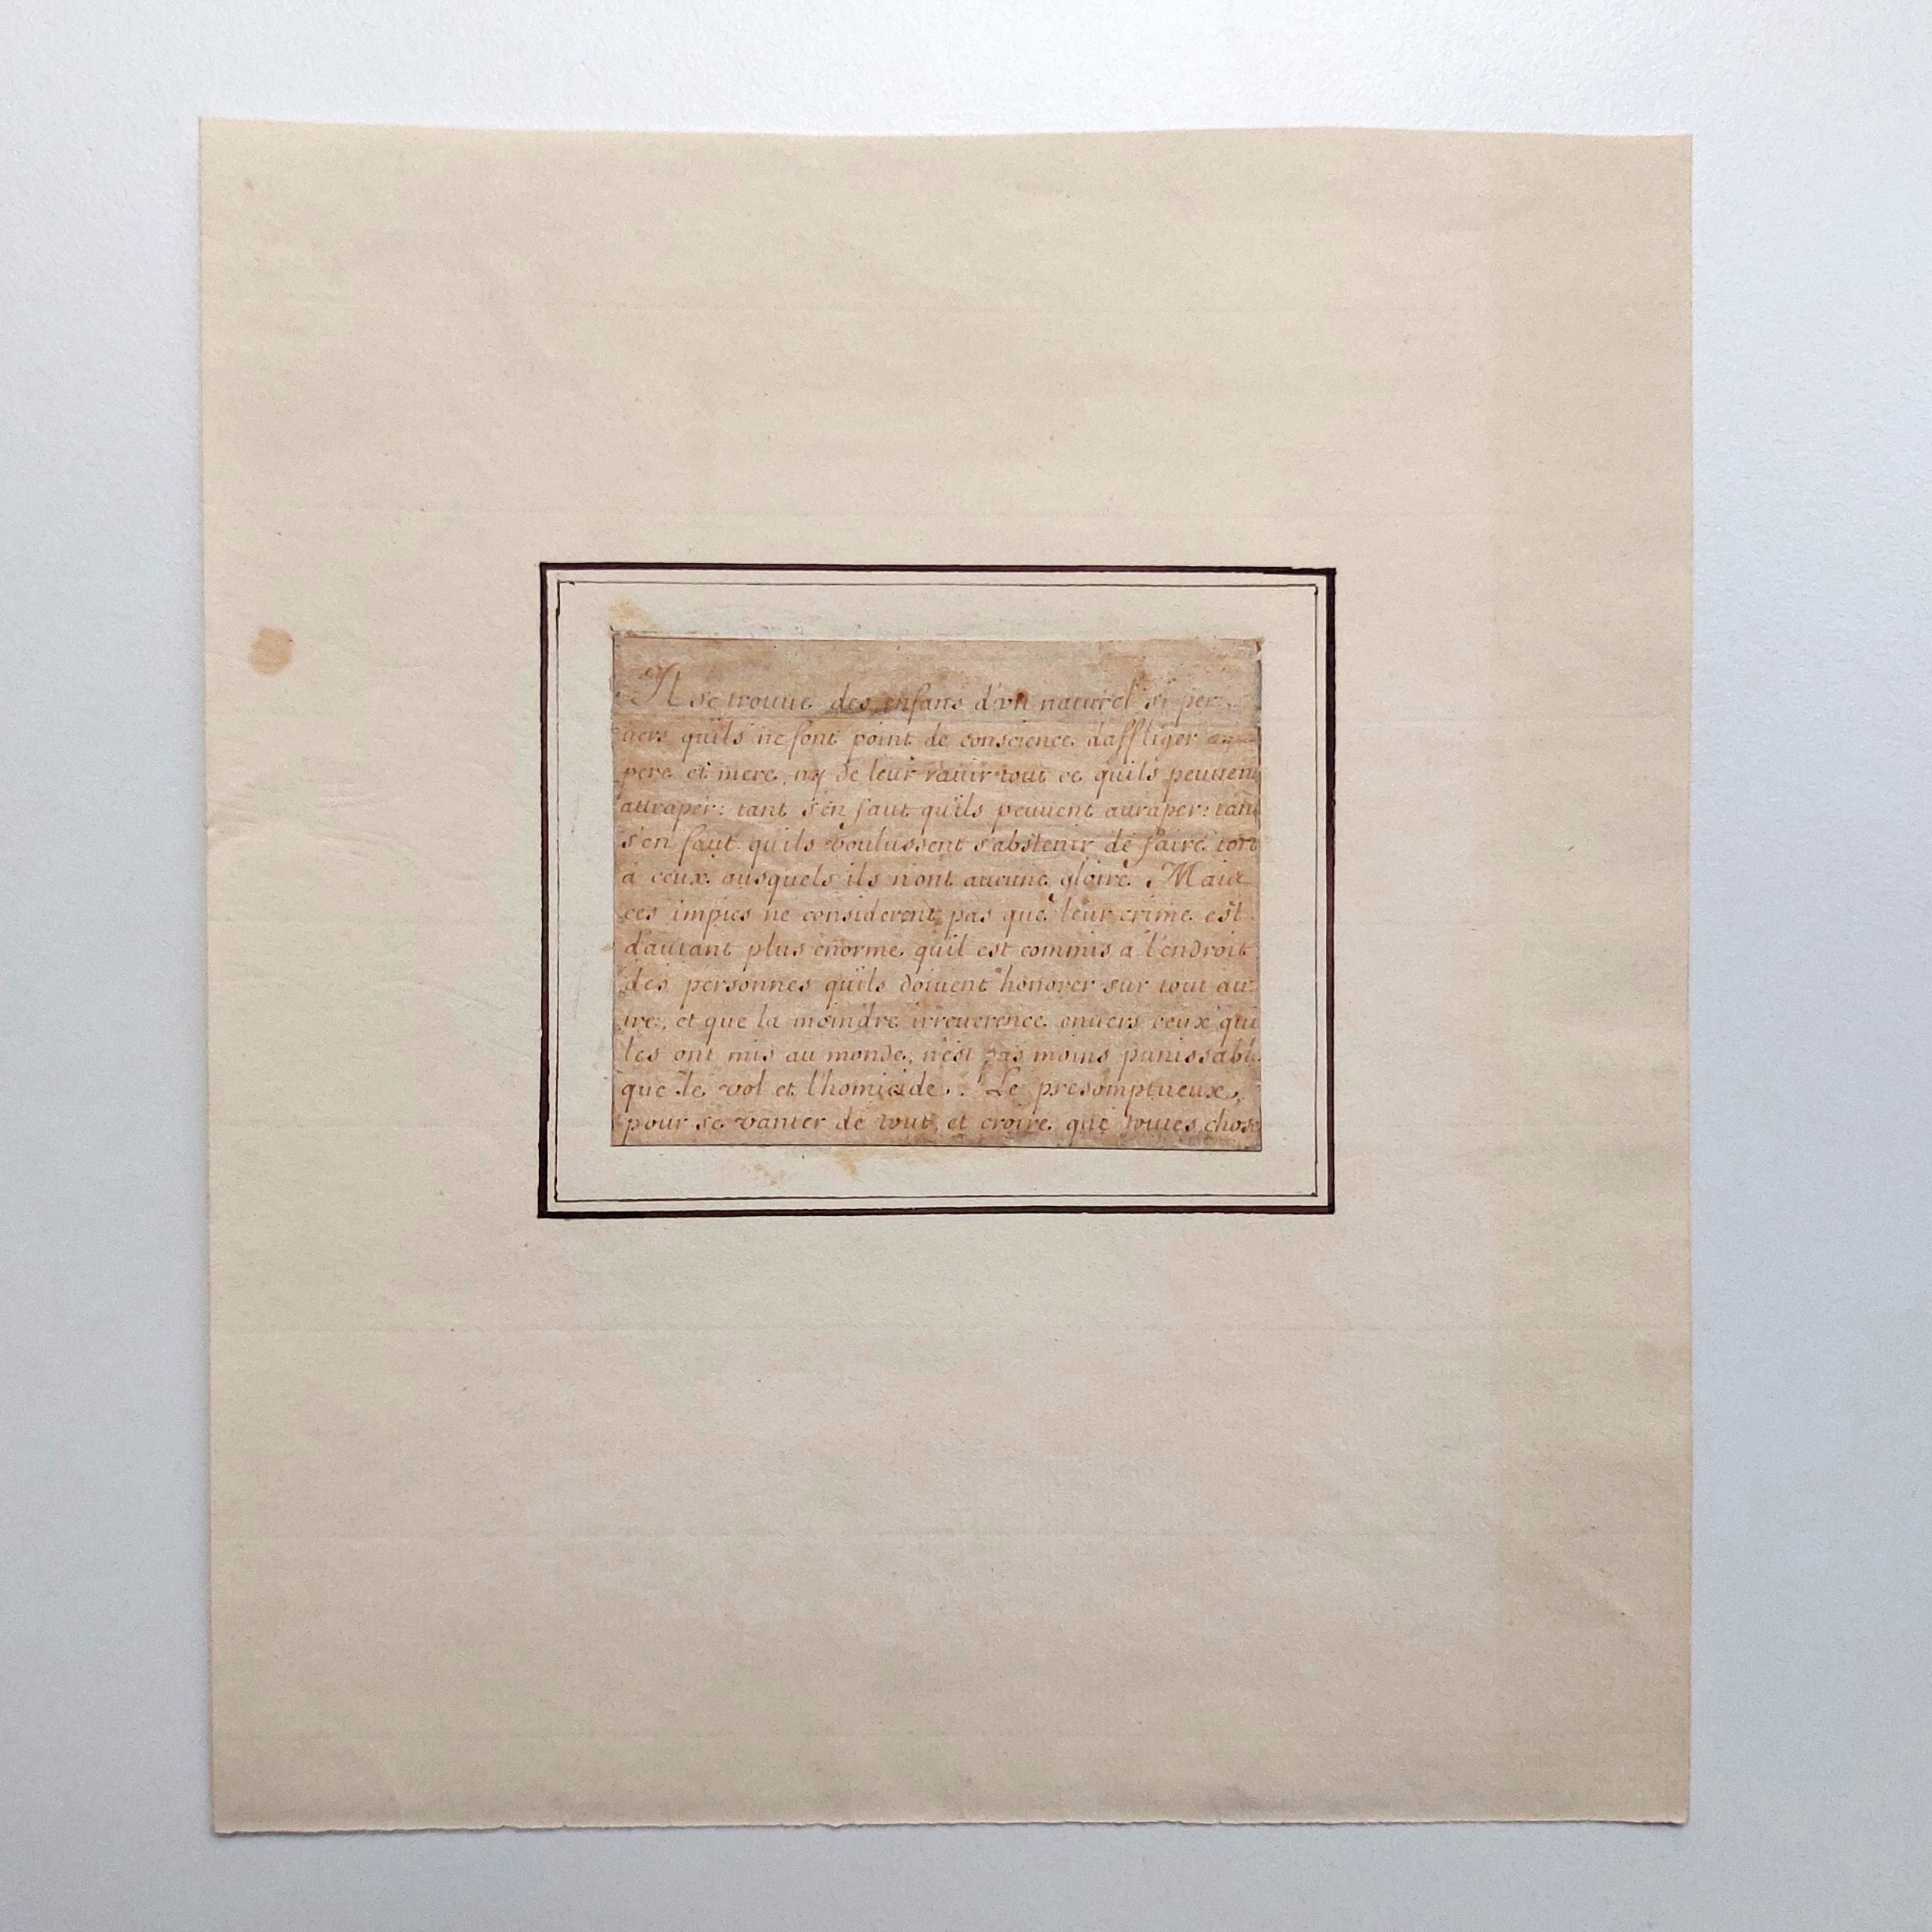 Il se trouue des enfans d'vn naturel si per-
uers quils ne font point de conscience daffliger
pere et mere, ny de leur rauir tout ce quils peuuent
attraper: tant s'en faut quils peuuent attraper: tant
s'en faut quils voulussent s'abstenir de faire tort
à ceux ausquels ils n'ont aucune gloire. Maix
ces impies ne considerent pas que leur crime est
d'autant plus enorme quil est commis a l'endroit
des personnes quils doiuent honorer sur tout au-
tre, et que la moindre irreuerence enuers ceux qui
les ont mis au monde, n'est pas moins punissable
que le vol et l'homicide. Le presomptueux,
pour se vanter de tout, et croire que toutes chose